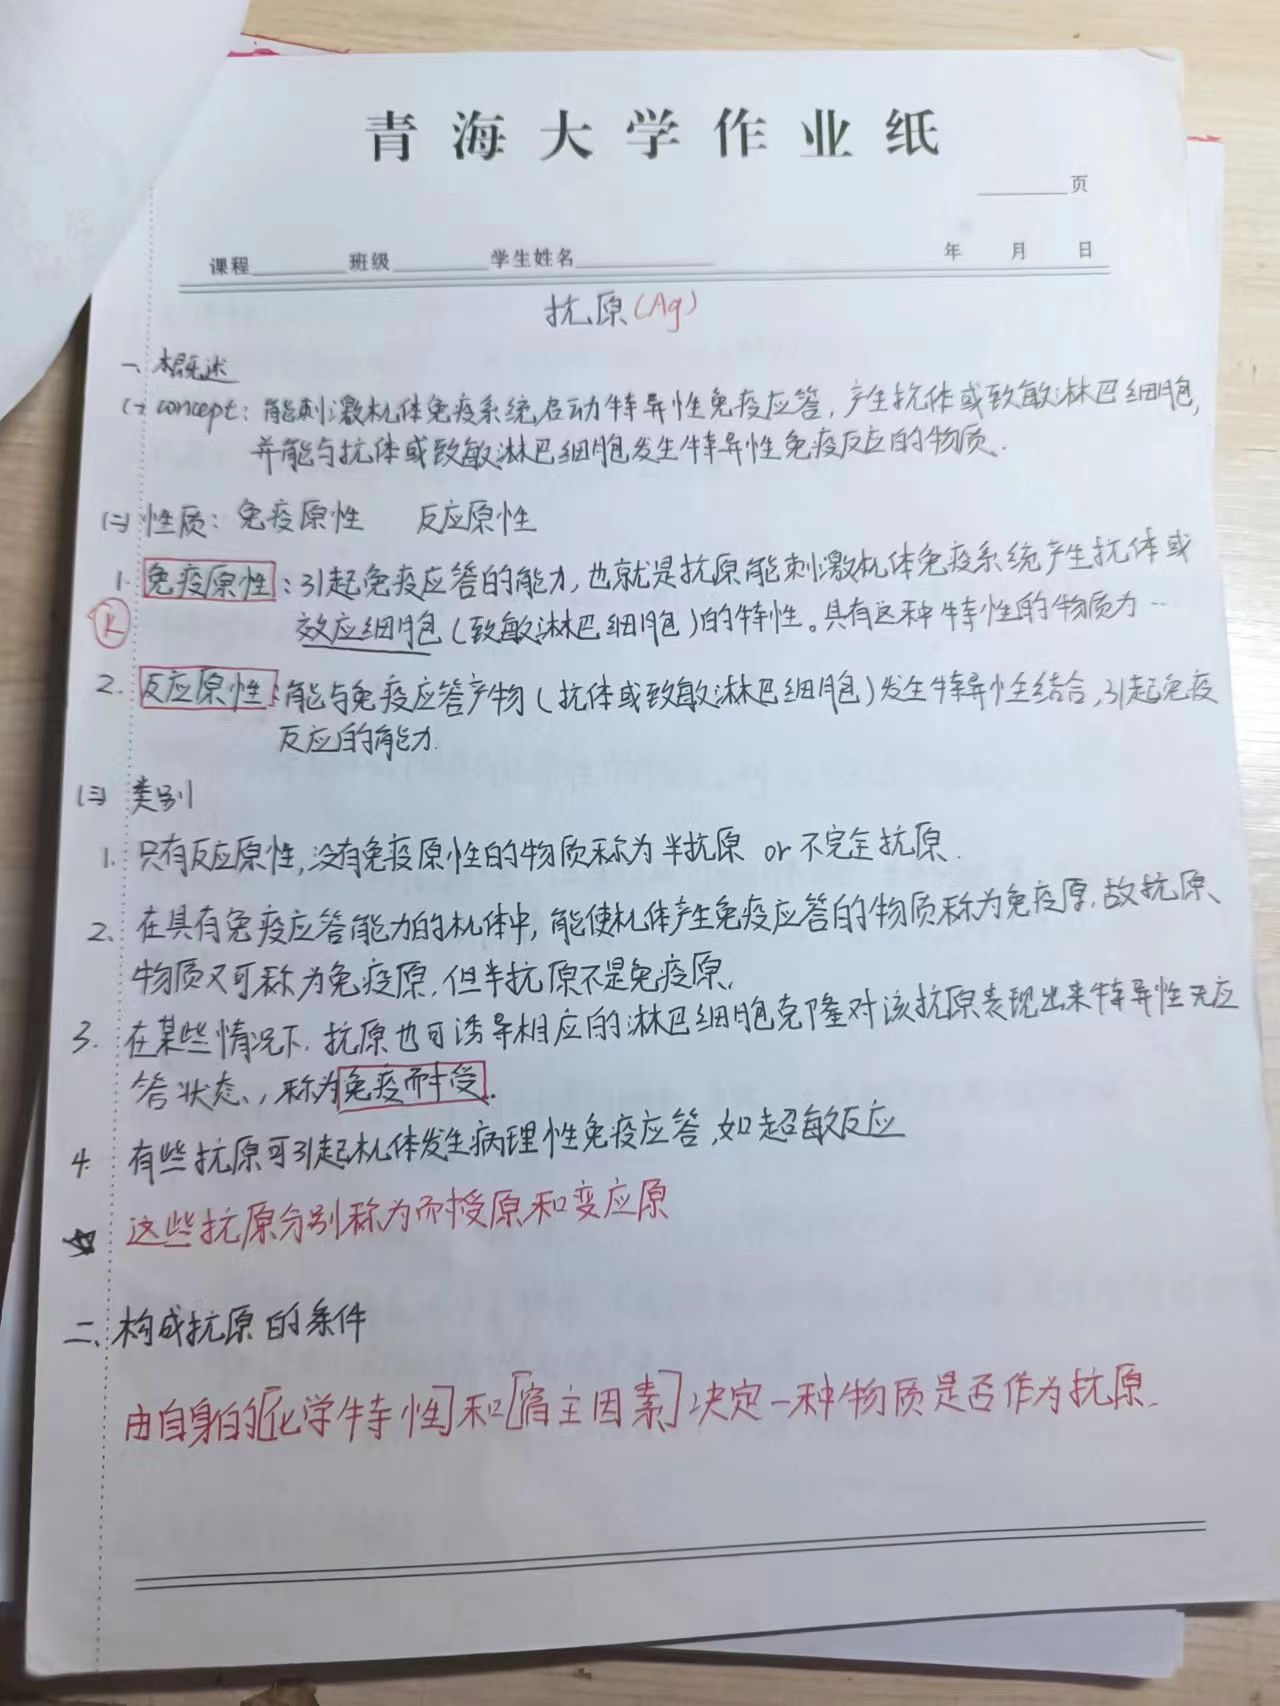 青海大学作业纸
页
课程 班级 学生姓名 年 月 日
抗原(Ag)
一、概述
(一) concept: 能刺激机体免疫系统,启动特异性免疫应答,产生抗体或致敏淋巴细胞,
并能与抗体或致敏淋巴细胞发生特异性免疫反应的物质.
(二) 性质: 免疫原性 反应原性
1. 免疫原性: 引起免疫应答的能力,也就是抗原能刺激机体免疫系统产生抗体或
效应细胞(致敏淋巴细胞)的特性。具有这种特性的物质为…
2. 反应原性: 能与免疫应答产物(抗体或致敏淋巴细胞)发生特异性结合,引起免疫
反应的能力.
(三) 类别
1. 只有反应原性,没有免疫原性的物质称为半抗原 or 不完全抗原.
2、在具有免疫应答能力的机体中,能使机体产生免疫应答的物质称为免疫原,故抗原、
物质又可称为免疫原,但半抗原不是免疫原,
3. 在某些情况下,抗原也可诱导相应的淋巴细胞克隆对该抗原表现出来特异性无应
答状态,称为免疫耐受.
4. 有些抗原可引起机体发生病理性免疫应答,如超敏反应
☆ 这些抗原分别称为耐授原和变应原
二、构成抗原的条件
由自身的[化学特性]和[宿主因素]决定一种物质是否作为抗原.